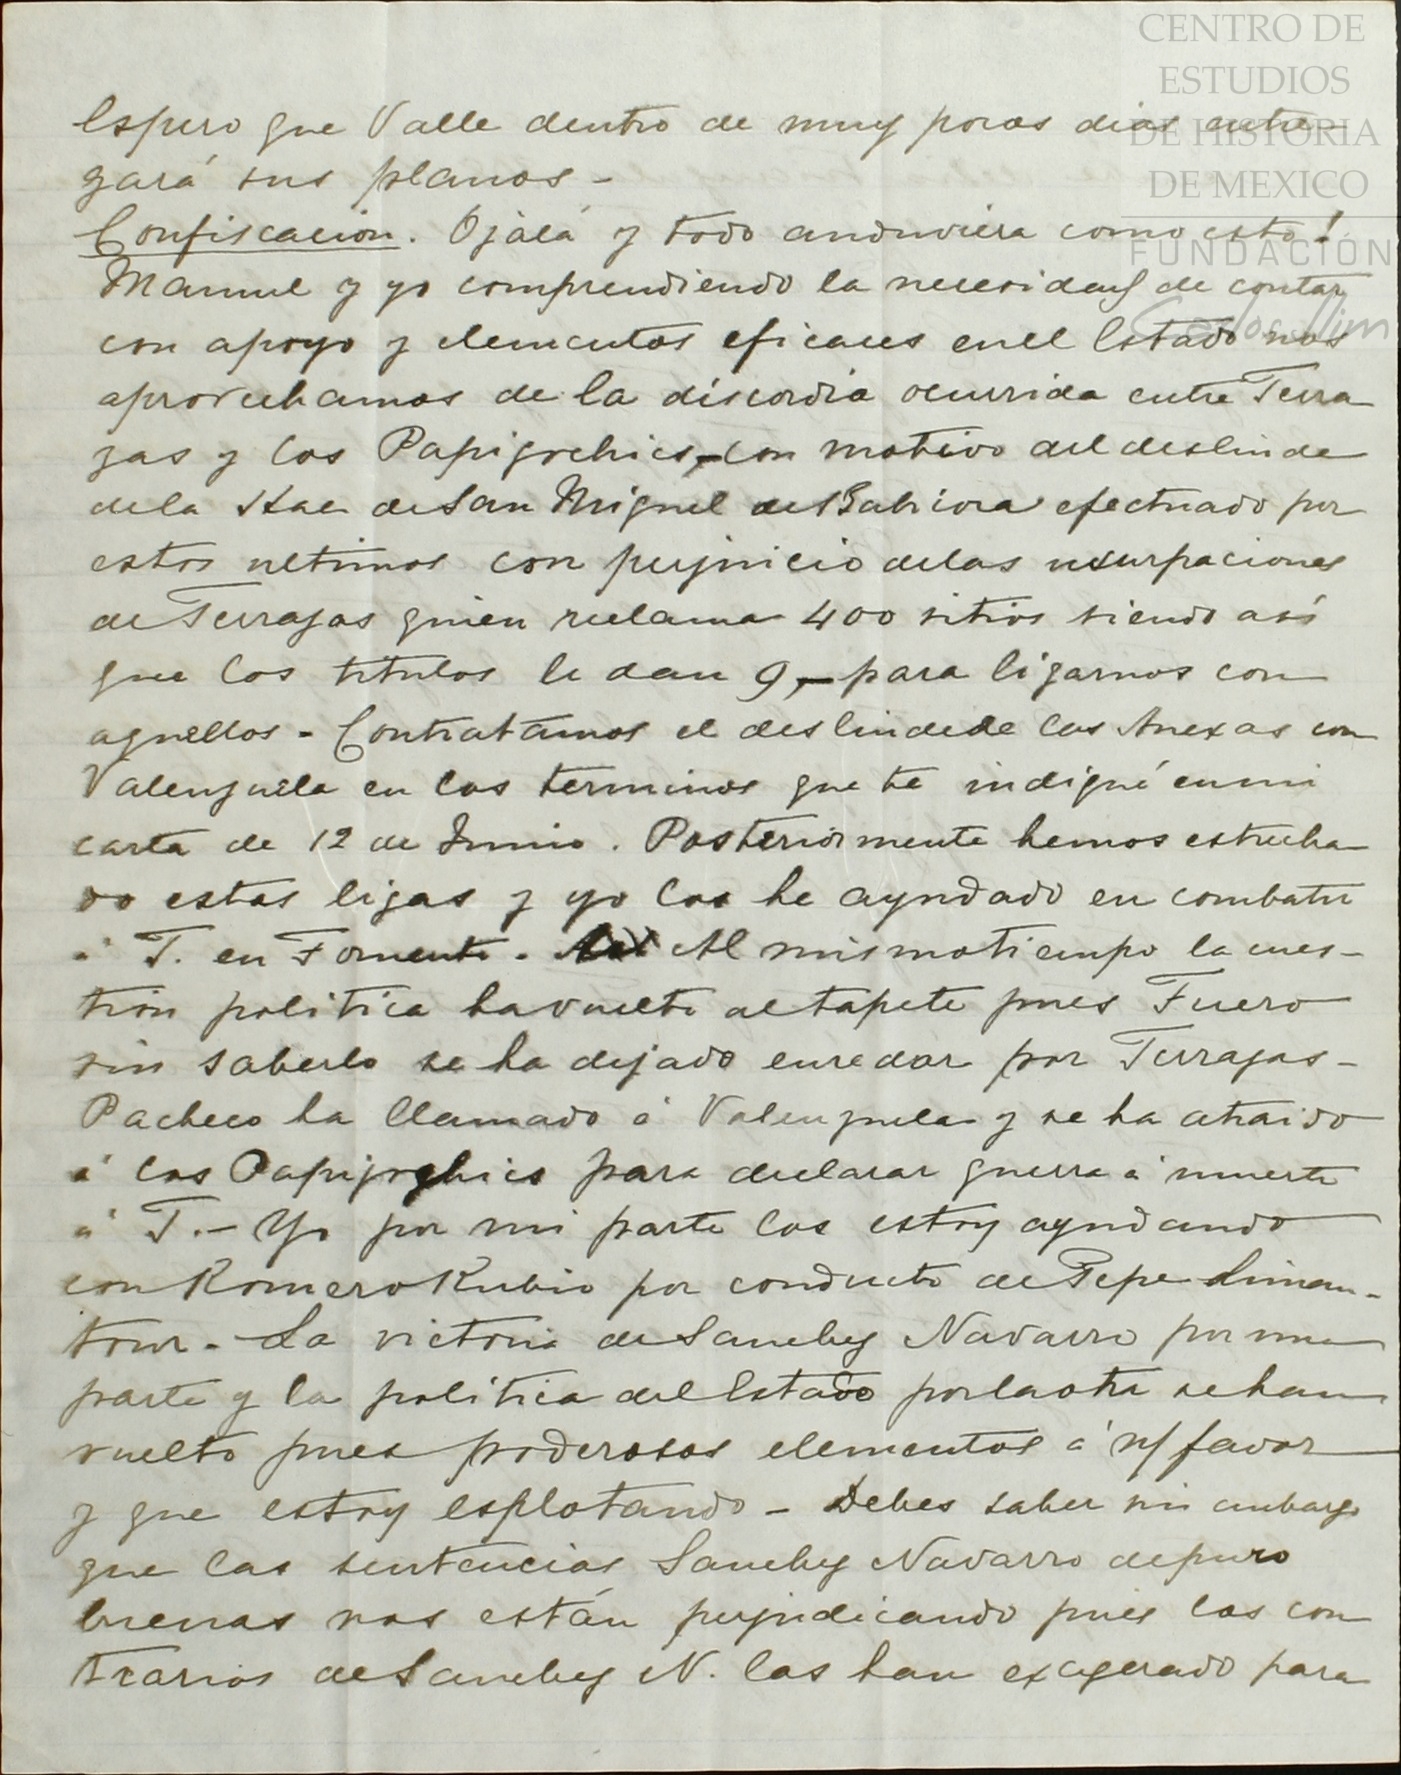 CENTRO DE
ESTUDIOS
DE HISTORIA
DE MEXICO
FUNDACIÓN
Carlos Slim
Espero que Valle dentro de muy pocos dias entre-
gará sus planos -
Confiscacion. Ojalá y todo anduviera como esto!
Manuel y yo comprendiendo la necesidad de contar
con apoyo y elementos eficaces en el Estado nos
aprovechamos de la discordia ocurrida entre Terra
zas y los Papigochics, con motivo del deslinde
de la Hac de San Miguel de Babicora efectuado por
estos ultimos con perjuicio de las usurpaciones
de Terrazas quien reclama 400 sitios siendo asi
que los titulos le dan 9, - para ligarnos con
aquellos - Contratamos el deslinde de las Anexas con
Valenzuela en los terminos que te indiqué en mi
carta de 12 de Junio. Posteriormente hemos estrecha
do estas ligas y yo los he ayudado en combatir
á T. en Fomento. Al mismo tiempo la cues-
tion politica ha vuelto al tapete pues Fuero
sin saberlo se ha dejado enredar por Terrazas -
Pacheco ha llamado á Valenzuela y se ha atraido
á los Papigochics para declarar guerra á muerte
á T. - Yo por mi parte los estoy ayudando
con Romero Rubio por conducto de Pepe Liman-
tour. - La victoria de Sanchez Navarro por una
parte y la politica del Estado por la otra se han
vuelto pues poderosos elementos á n/ favor
y que estoy esplotando - Debes saber sin embargo
que las sentencias Sanchez Navarro de puro
buenas nos están perjudicando pues los con
trarios de Sanchez N. las han exagerado para